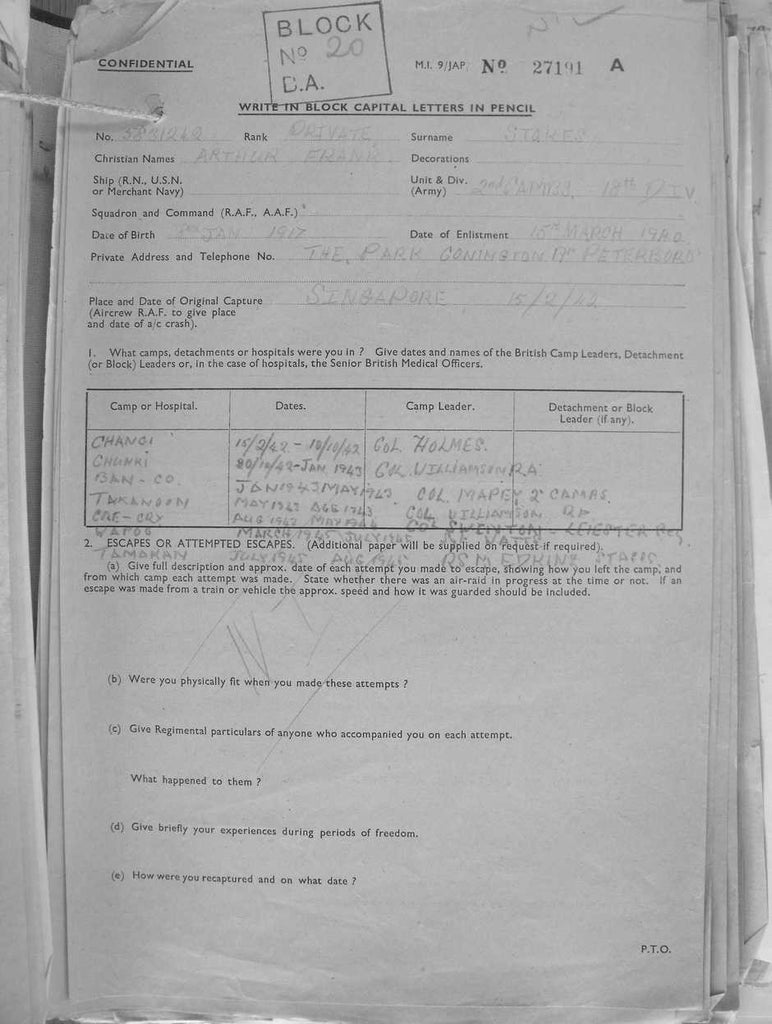 BLOCK
No 20
B.A.
CONFIDENTIAL
M.I. 9/JAP No 27191 A
WRITE IN BLOCK CAPITAL LETTERS IN PENCIL
No. 5831242 Rank PRIVATE Surname STOKES
Christian Names ARTHUR FRANK Decorations
Ship (R.N., U.S.N. or Merchant Navy) Unit & Div. (Army) 2nd CAMBS, 18th DIV
Squadron and Command (R.A.F., A.A.F.)
Date of Birth JAN 1917 Date of Enlistment 15TH MARCH 1940
Private Address and Telephone No. THE PARK CONINGTON Nr PETERBORO
Place and Date of Original Capture SINGAPORE 15/2/42
(Aircrew R.A.F. to give place
and date of a/c crash).
1. What camps, detachments or hospitals were you in ? Give dates and names of the British Camp Leaders, Detachment
(or Block) Leaders or, in the case of hospitals, the Senior British Medical Officers.
Camp or Hospital. Dates. Camp Leader. Detachment or Block Leader (if any).
CHANGI 15/2/42 - 10/10/42 COL HOLMES.
CHUNKI 20/10/42 - JAN 1943 COL WILLIAMSON R.A
BAN - CO. JAN 1943 MAY 1943 COL MAPEY 2 CAMBS.
TAKANOON MAY 1943 AUG 1943 COL WILLIAMSON. RA
CRE - CRY AUG 1943 MAY 1944 COL SWINTON - LEICESTER REG.
MARCH 1945 JULY 1945
2. ESCAPES OR ATTEMPTED ESCAPES. (Additional paper will be supplied on request if required).
TAMAKAN JULY 1945 AUG 1945 RSM EDKINS STAFFS
(a) Give full description and approx. date of each attempt you made to escape, showing how you left the camp, and
from which camp each attempt was made. State whether there was an air-raid in progress at the time or not. If an
escape was made from a train or vehicle the approx. speed and how it was guarded should be included.
(b) Were you physically fit when you made these attempts ?
(c) Give Regimental particulars of anyone who accompanied you on each attempt.
What happened to them ?
(d) Give briefly your experiences during periods of freedom.
(e) How were you recaptured and on what date ?
P.T.O.